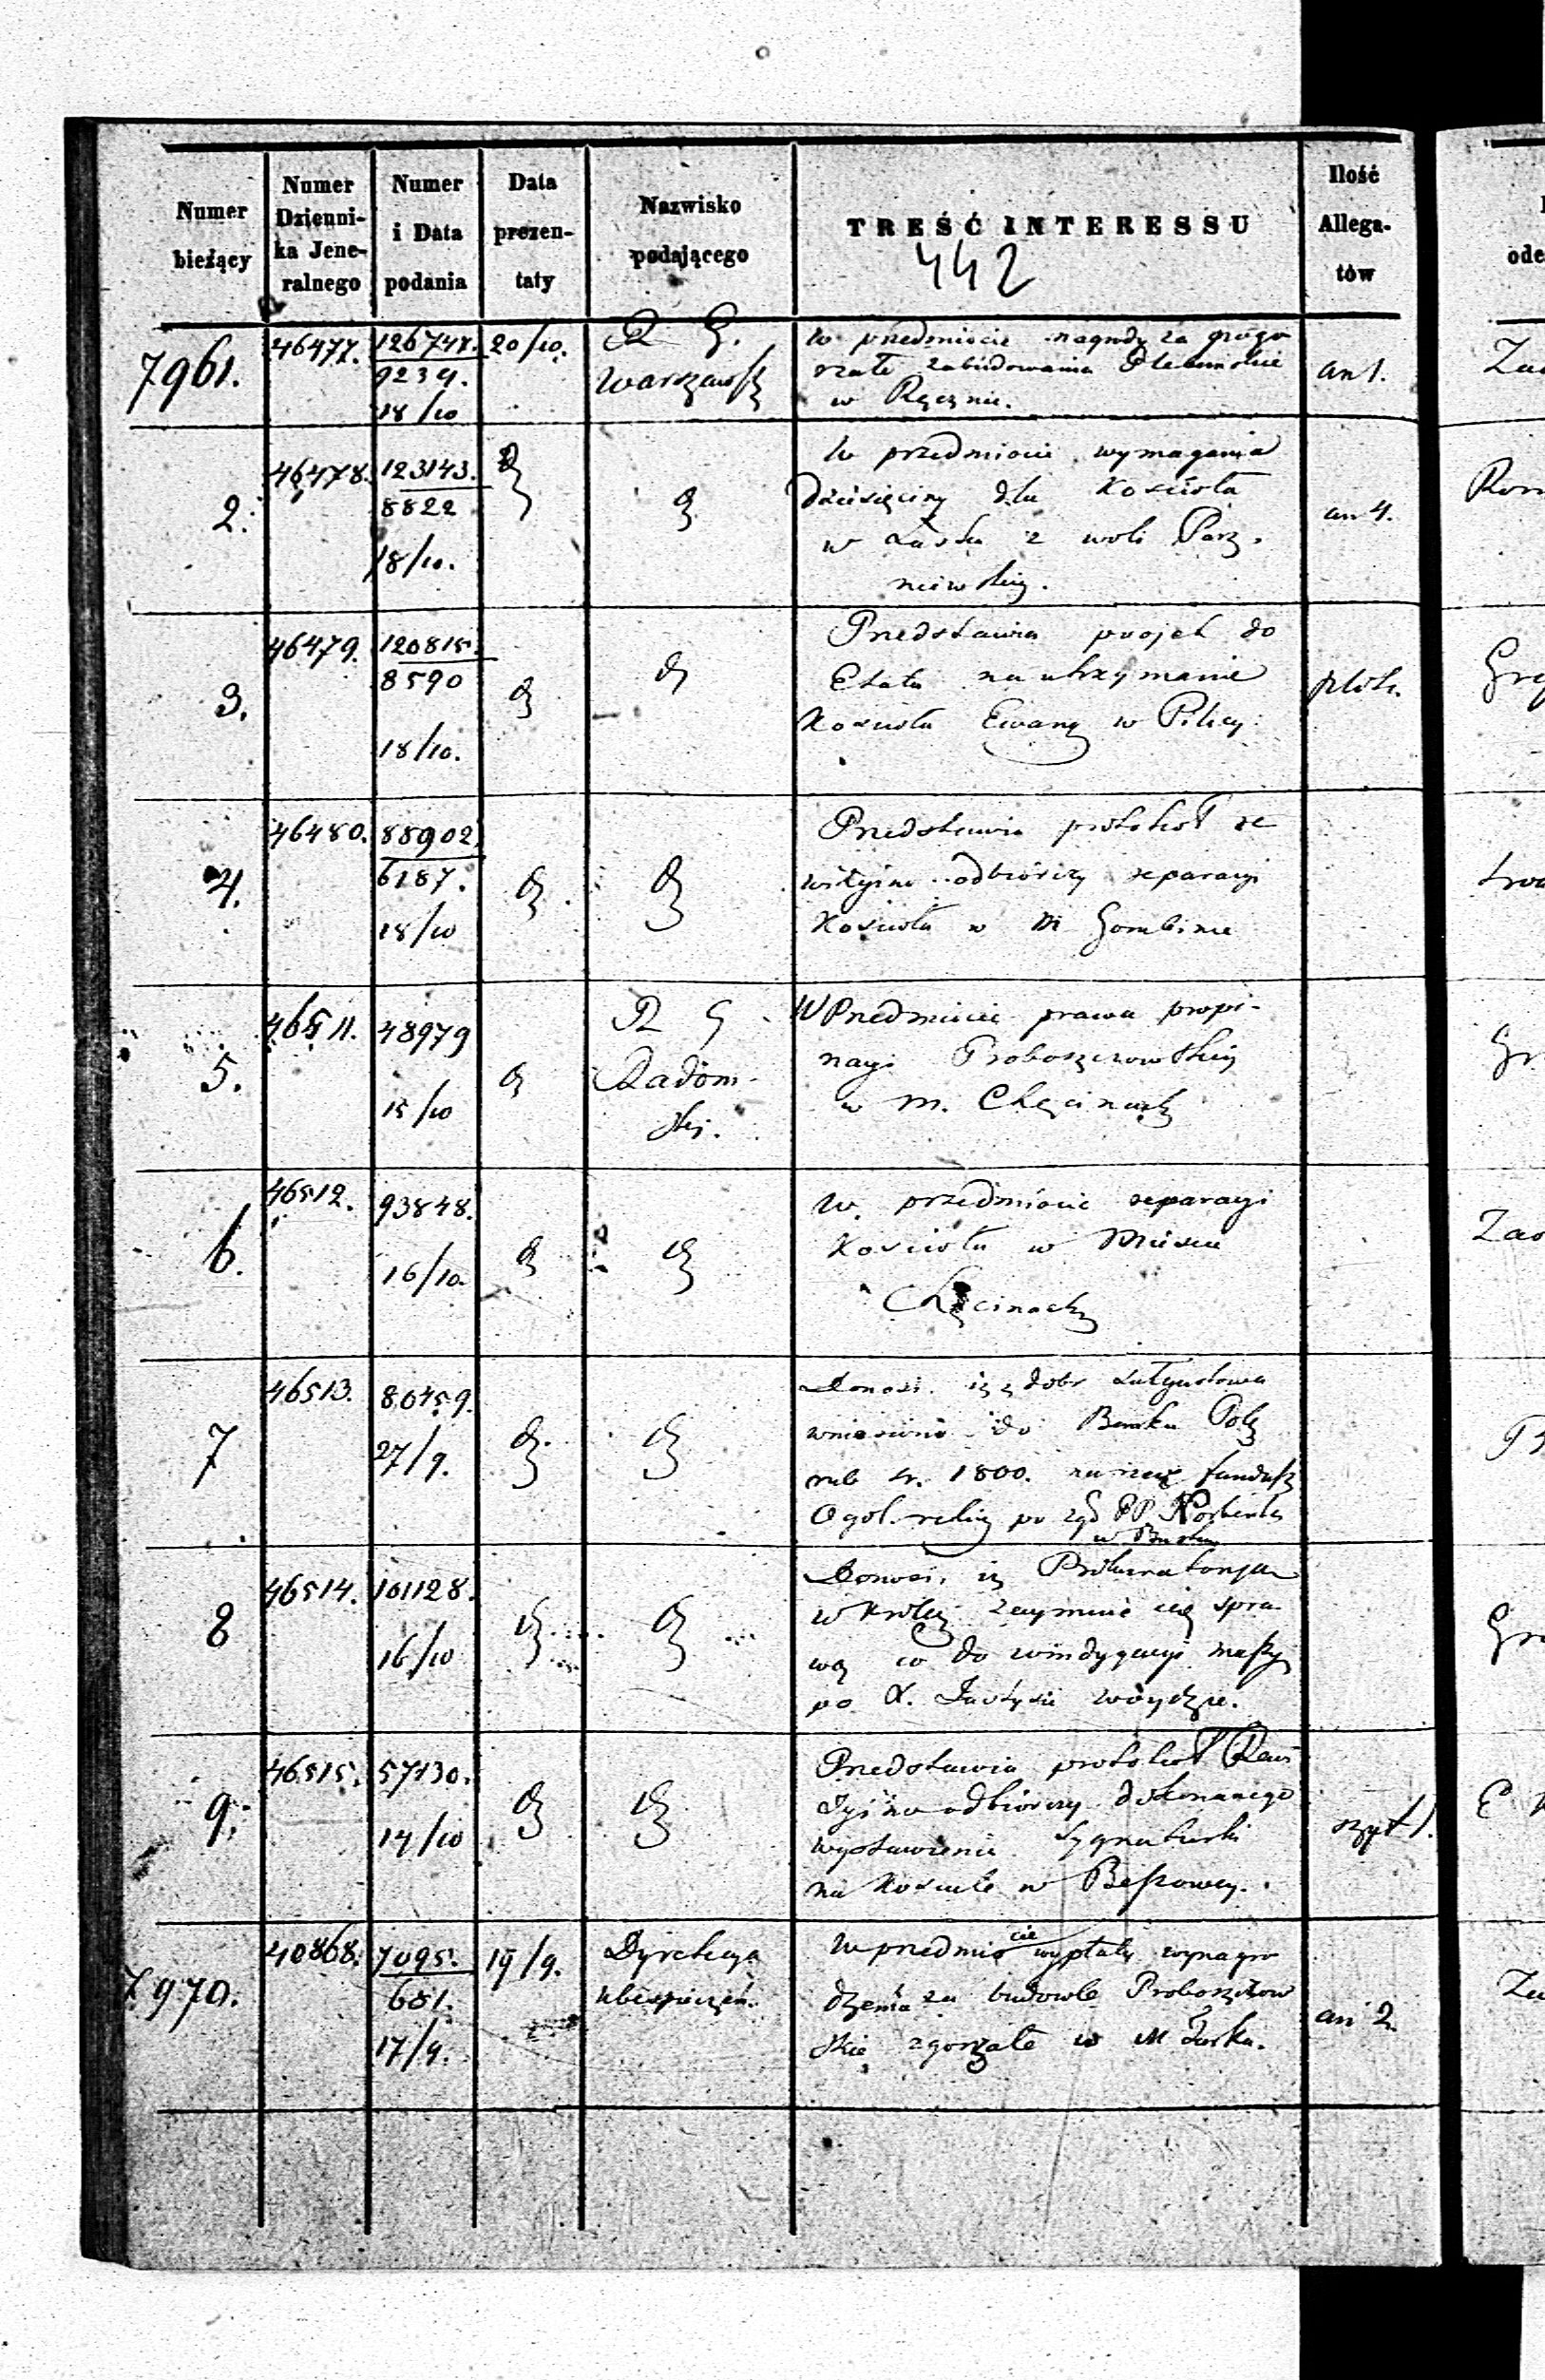 Numer bieżący | Numer Dzienni- ka Jene- ralnego | Numer i Data podania | Data prezen- taty | Nazwisko podającego | TREŚĆ INTERESSU | Ilość Allega- tów
442
7961. | 46477. | 126748. 9239. 18/10 | 20/10. | R G. Warszawsk | an 1.
W przedmiocie nagrody za pogo
rzałe zabudowania Plebańskie
w Ręcznie.
2. | 46478. | 123143. 8822 18/10. | an 4.
W przedmiocie wymagania
dziesięciny dla Kościoła
w Łasku z woli Parz
niewskiej.
3. | 46479. | 120815. 8590 18/10.
Przedstawia projekt do
Etatu na utrzymanie
Kościoła Ewang w Pilicy
4. | 46480. | 88902. 6187. 18/10
Przedstawia protokół re
wizyjno odbiorczy reparacyi
Kościoła w M Gombinie
5. | 46511. | 48979 15/10 | R G Radom- ski.
W Przedmiocie prawa propi-
nacyi Proboszczowskiej
w m. Chęcinach
6. | 46512. | 93848. 16/10.
W przedmiocie reparacyi
Kościoła w Mieście
Chęcinach
7 | 46513. | 80459. 27/9.
Donosi iż z dobr
wniesiono do Banku Pols
rub sr. 1800. na rzecz fundusz
Ogol. relig po zgs PP. Norbertek
w Busku
8 | 46514. | 101128. 16/10
Donosi, iż Prokuratorya
w Króles zajmuie się spra
wą co do windykacyi massy
po X.
9. | 46515. | 57130. 14/10 | szyt 1.
Przedstawia protokół Rewi
zyjno odbiorczy dokonanego
wystawienia Sygnaturki
na Kosciele w Beszowey.
7970. | 40868. | 7095. 681. 17/9. | 19/9. | Dyrekcya ubespieczeń. | an 2.
W przedmiocie wypłaty wynagro
dzenia za budowle Proboszczow
skie zgorzałe w M Żarka.